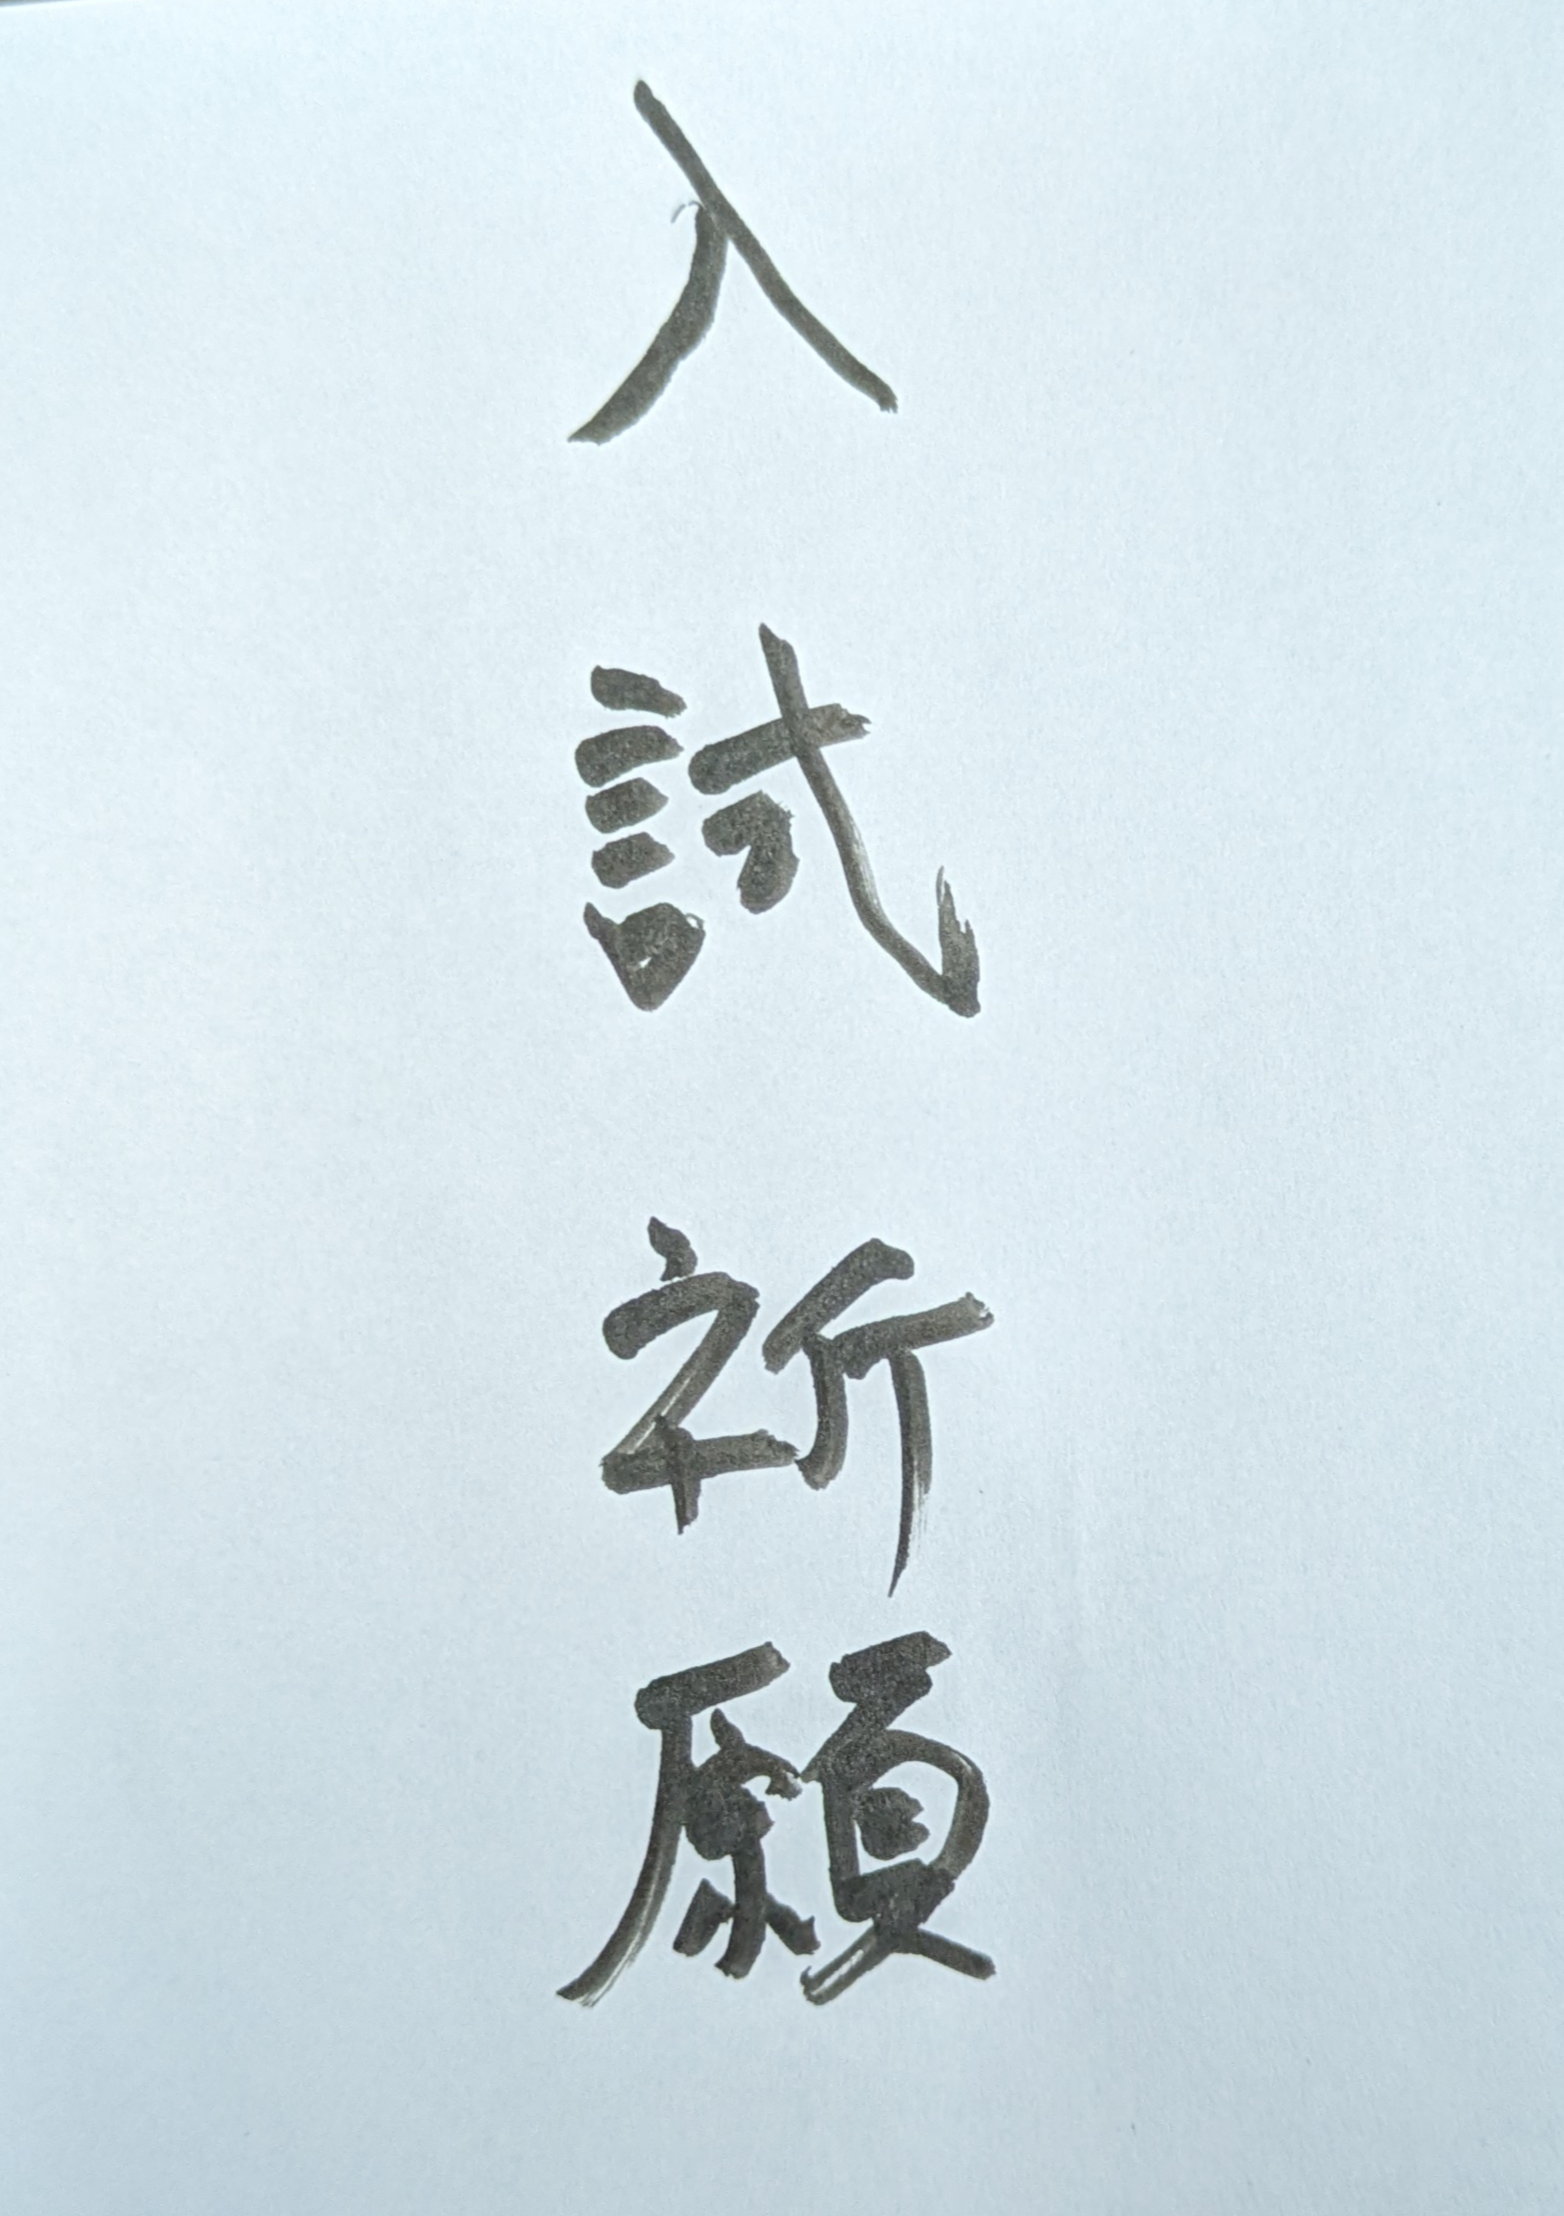 入試祈願